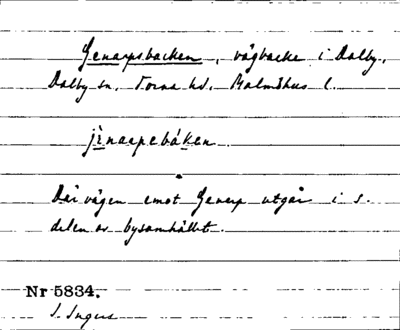 Genarpsbacken, vägbacke i Dalby,
Dalby sn, Torna hd, Malmöhus l.
jènarpebáken
Där vägen emot Genarp utgår i s.
delen av bysamhället.
Nr 5834.
S. Ingers